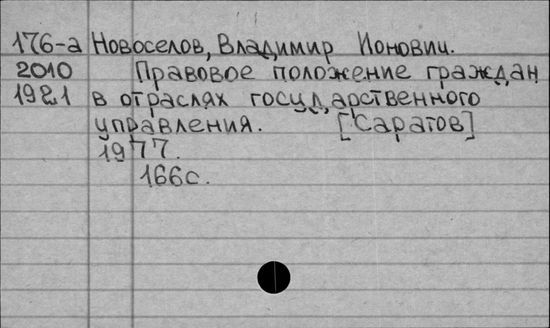 176-а Новоселов, Владимир Ионовии.
2010 Правовое положение граждан
1921 в отраслях государственного
управления. [Саратов]
1977.
166с.